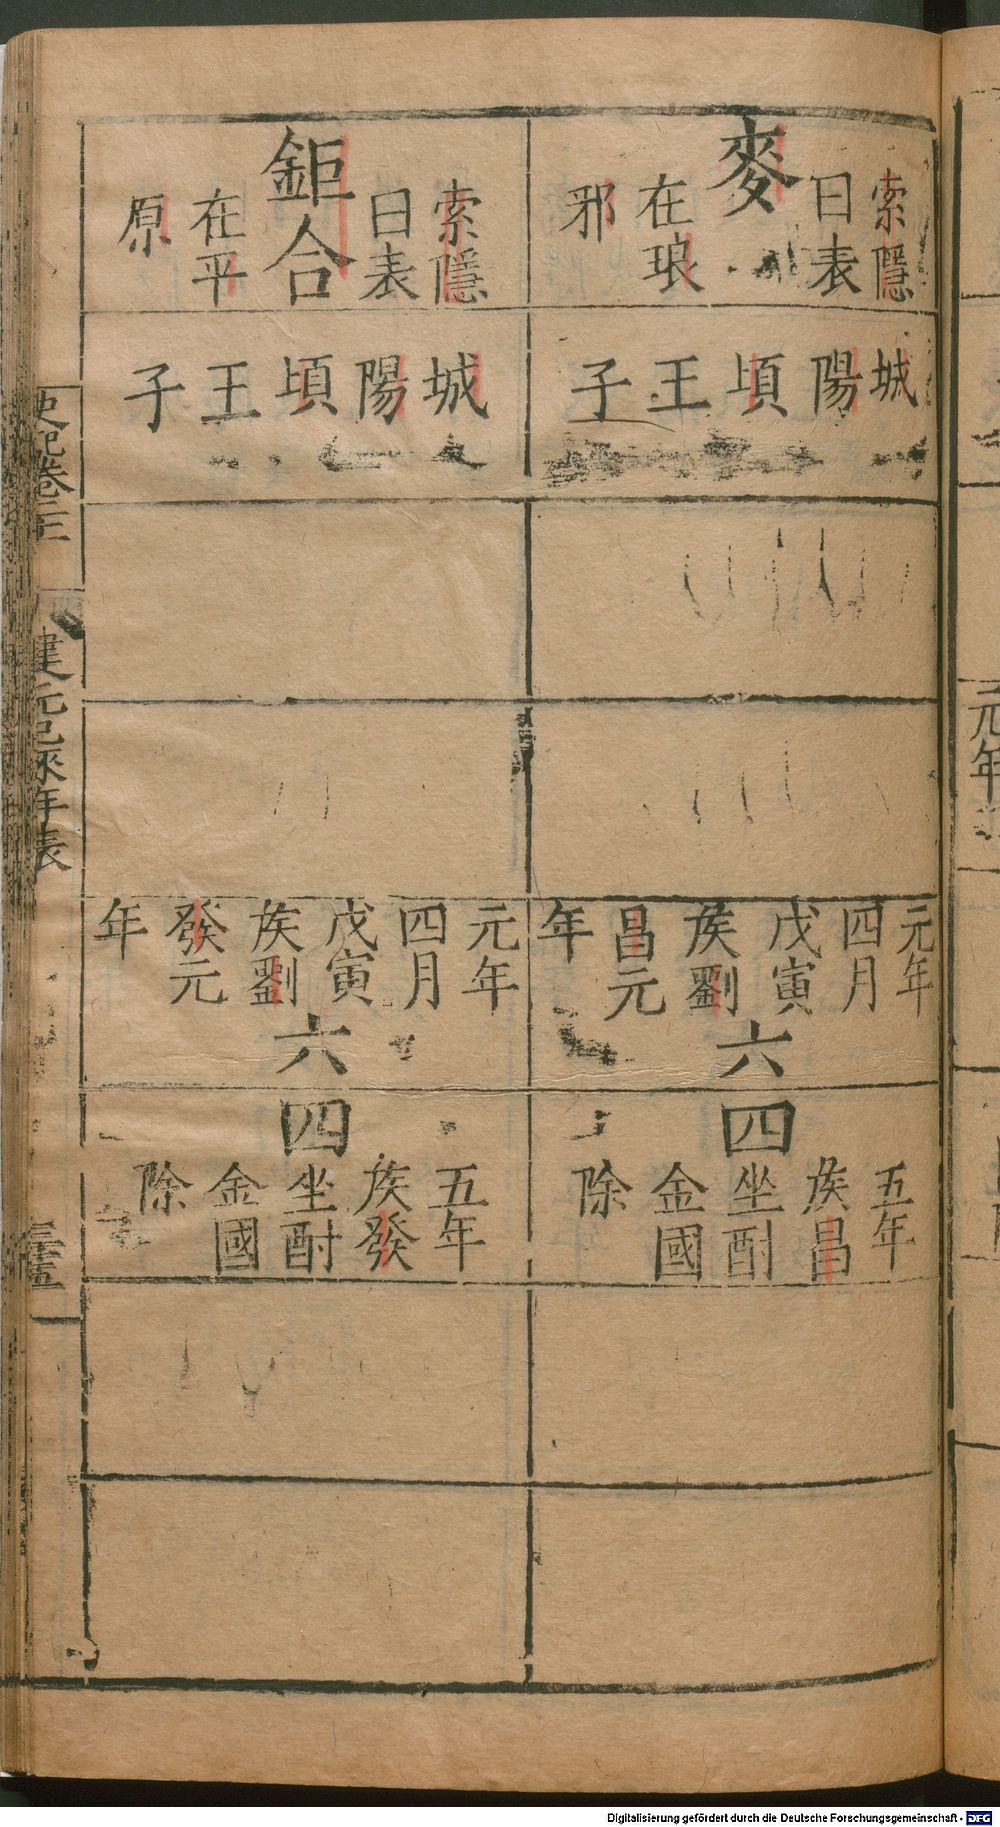 麥
索隱
曰表
在琅
邪
城陽頃王子
元年
四月
戊寅
侯劉
昌元
年
六
四
五年
侯昌
坐酎
金國
除
鉅合
索隱
曰表
在平
原
城陽頃王子
元年
四月
戊寅
侯劉
發元
年
六
四
五年
侯發
坐酎
金國
除
史記卷二十
建元已來年表
元年
Digitalisierung gefördert durch die Deutsche Forschungsgemeinschaft - DFG